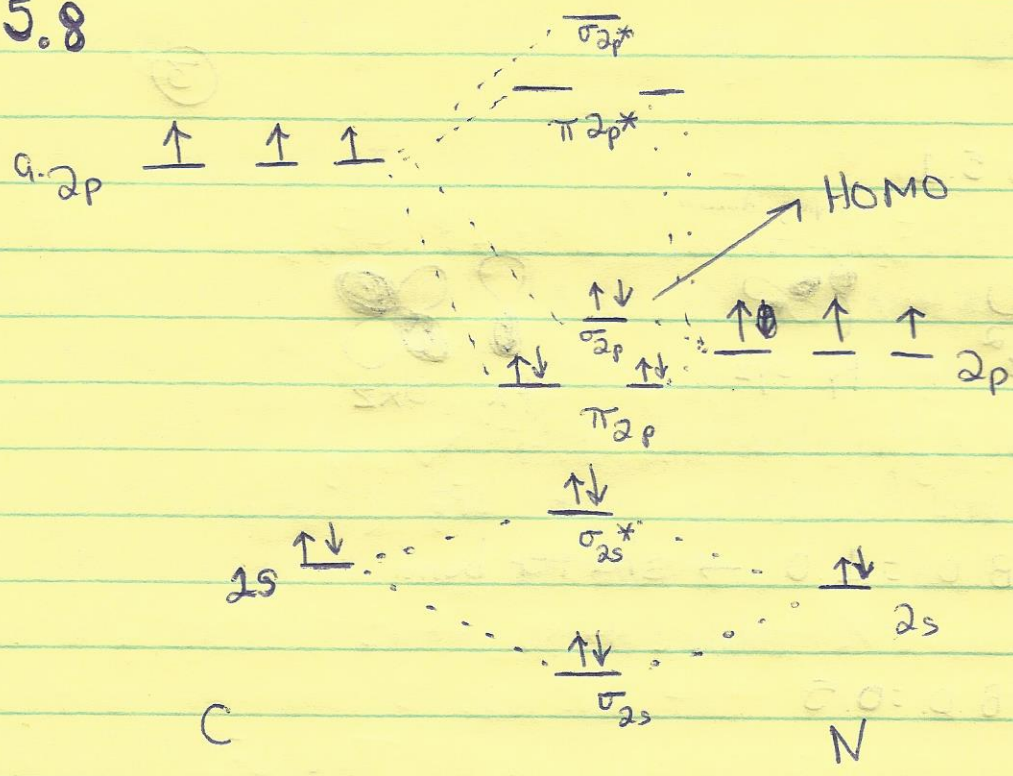 5.8
σ2p*
π 2p*
a. 2p ↑ ↑ ↑
HOMO
↑↓
σ2p
↑ ↑ ↑ 2p
↑↓ ↑↓
π2p
↑↓
σ2s*
2s ↑↓
↑↓
2s
↑↓
σ2s
C N